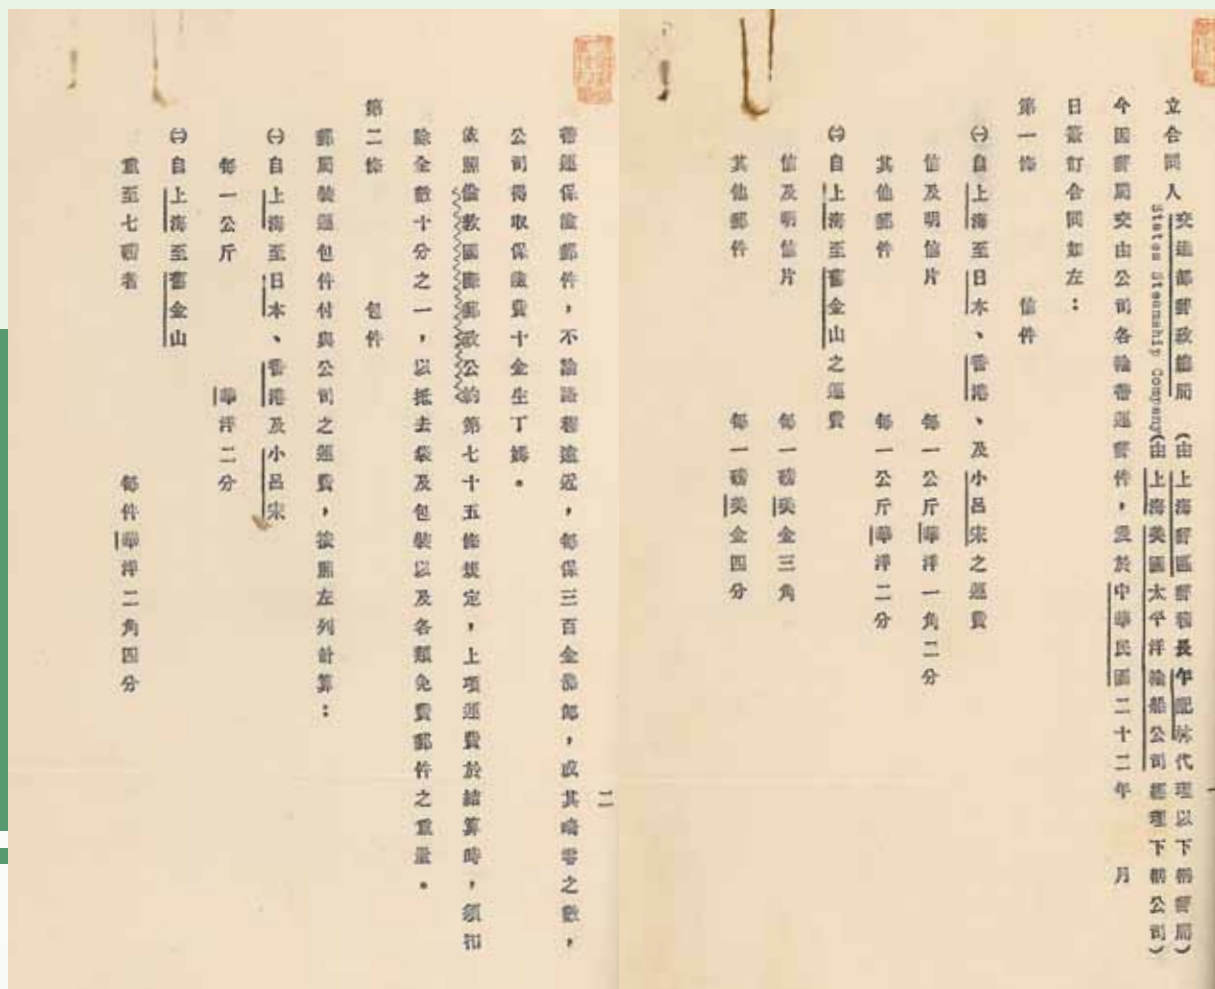 立合同人 交通部郵政總局 (由上海郵區郵務長乍配林代理以下稱郵局)
States Steamship Company(由上海美國太平洋輪船公司經理下稱公司)
今因郵局交由公司各輪帶運郵件，爰於中華民國二十二年 月
日簽訂合同如左：
第一條 信件
㈠自上海至日本、香港、及小呂宋之運費
信及明信片 每一公斤華洋一角二分
其他郵件 每一公斤華洋二分
㈡自上海至舊金山之運費
信及明信片 每一磅美金三角
其他郵件 每一磅美金四分
二
帶運保險郵件，不論路程遠近，每保三百金佛郎，或其畸零之數，
公司得取保險費十金生丁姆。
依照倫敦國際郵政公約第七十五條規定，上項運費於結算時，須扣
除全數十分之一，以抵去袋及包裝以及各類免費郵件之重量。
第二條 包件
郵局裝運包件付與公司之運費，按照左列計算：
㈠自上海至日本、香港及小呂宋
每一公斤 華洋二分
㈡自上海至舊金山
重至七磅者 每件華洋二角四分